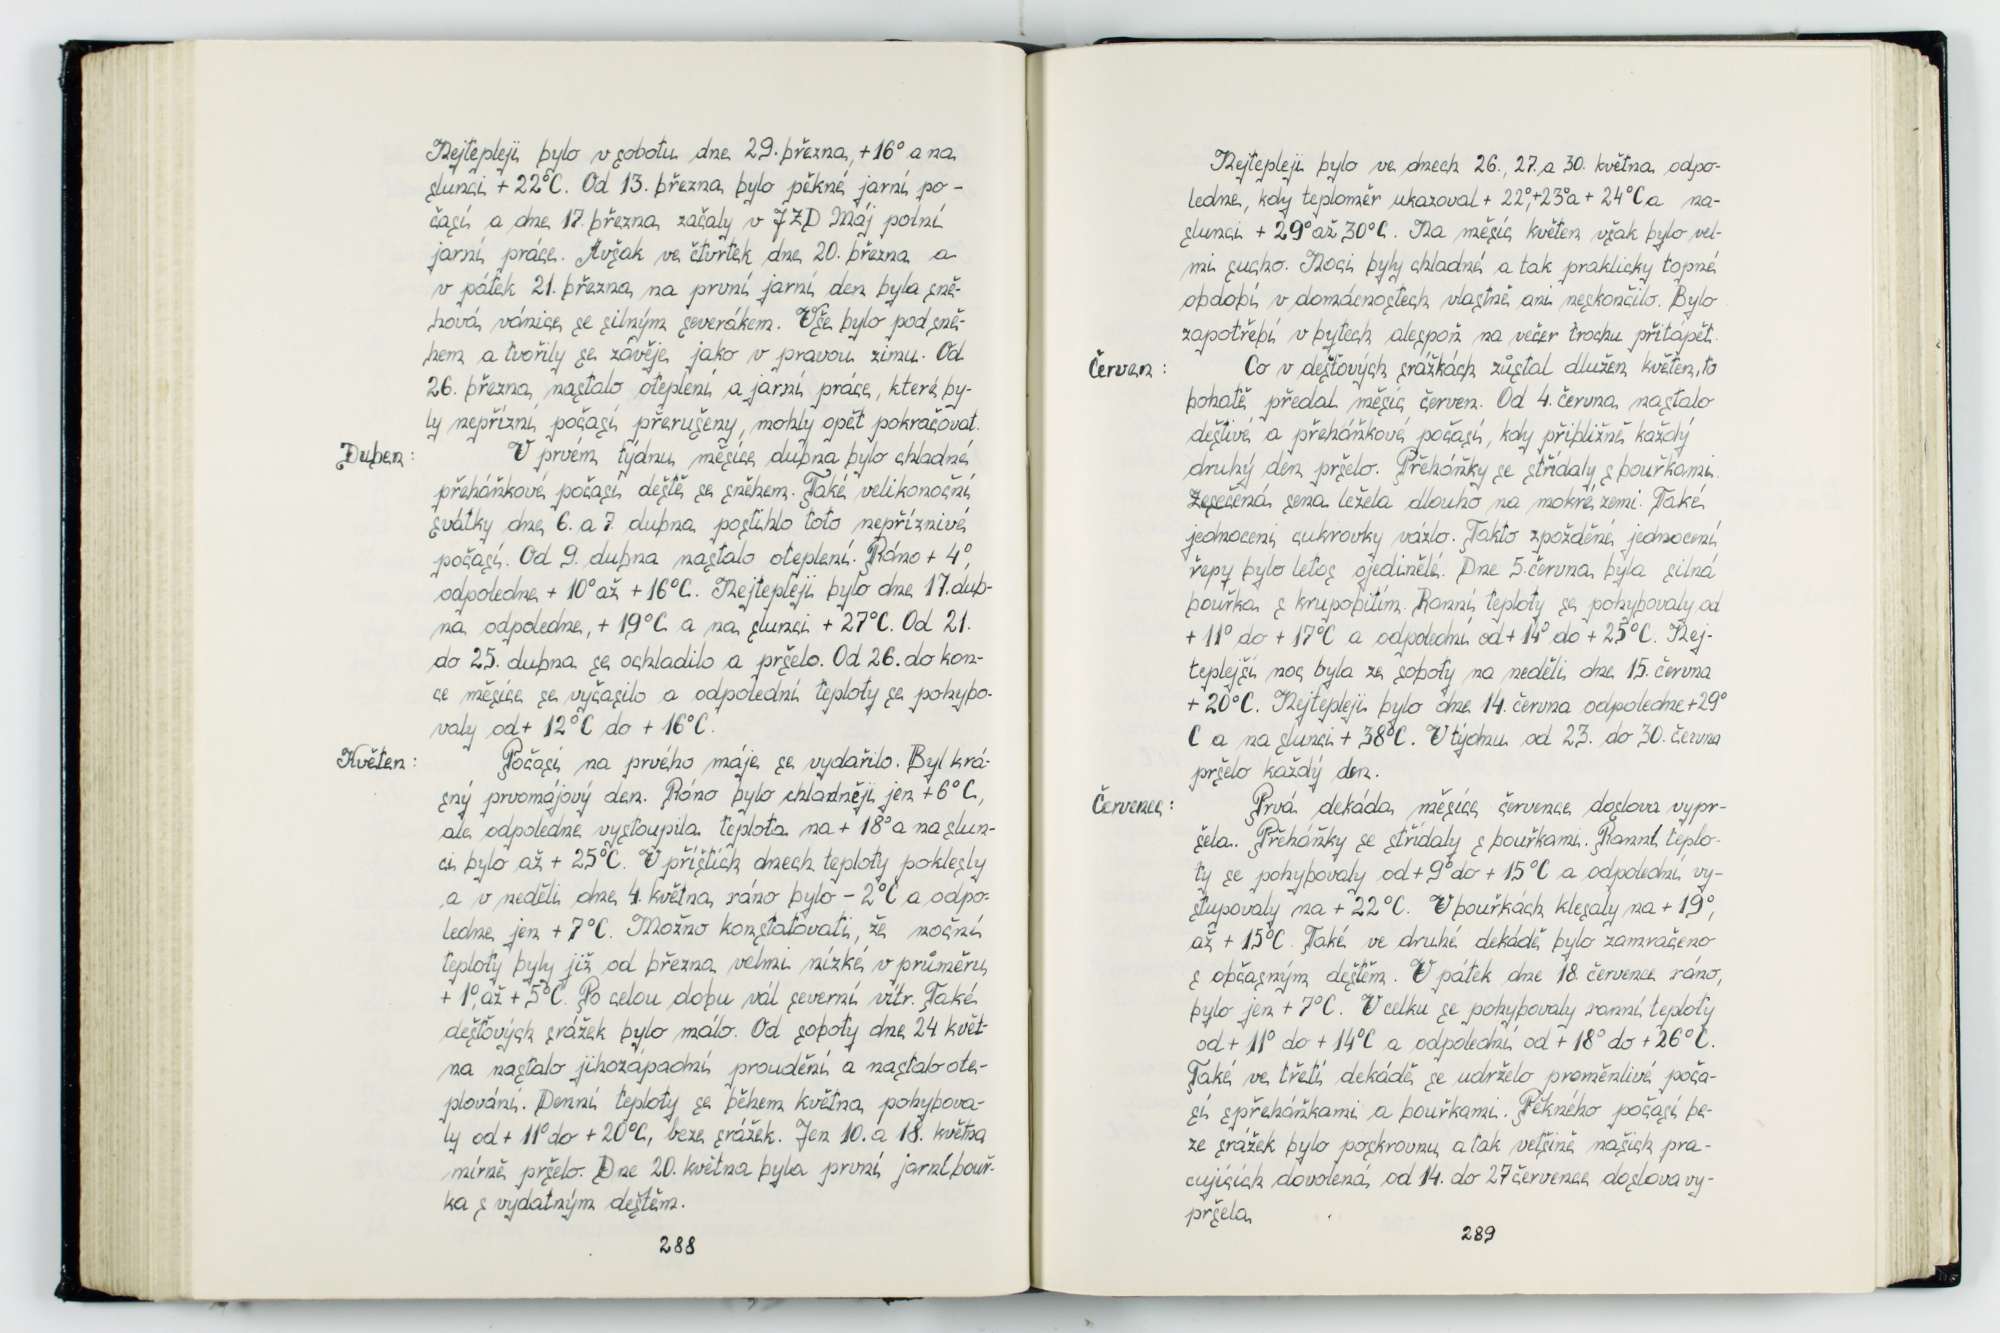 Nejtepleji bylo v sobotu dne 29. března, +16° a na
slunci +22°C. Od 13. března bylo pěkné jarní po-
časí a dne 17. března začaly v JZD Máj polní
jarní práce. Avšak ve čtvrtek dne 20. března a
v pátek 21. března, na první jarní den byla sně-
hová vánice se silným severákem. Vše bylo pod sně-
hem a tvořily se závěje jako v pravou zimu. Od
26. března nastalo oteplení a jarní práce, které by-
ly nepřízní počasí přerušeny, mohly opět pokračovat.
Duben: V prvém týdnu měsíce dubna bylo chladné
přeháňkové počasí deště se sněhem. Také velikonoční
svátky dne 6. a 7. dubna postihlo toto nepříznivé
počasí. Od 9. dubna nastalo oteplení. Ráno + 4°,
odpoledne + 10° až + 16°C. Nejtepleji bylo dne 17. dub-
na odpoledne, + 19°C a na slunci + 27°C. Od 21.
do 25. dubna se ochladilo a pršelo. Od 26. do kon-
ce měsíce se vyčasilo a odpolední teploty se pohybo-
valy od + 12°C do + 16°C.
Květen: Počasí na prvého máje se vydařilo. Byl krá-
sný prvomájový den. Ráno bylo chladněji jen +6°C,
ale odpoledne vystoupila teplota na + 18° a na slun-
ci bylo až + 25°C. V příštích dnech teploty poklesly
a v neděli dne 4. května ráno bylo - 2°C a odpo-
ledne jen + 7°C. Možno konstatovati, že noční
teploty byly již od března velmi nízké v průměru
+ 1°, až + 5°C. Po celou dobu vál severní vítr. Také
dešťových srážek bylo málo. Od soboty dne 24 květ-
na nastalo jihozápadní proudění a nastalo ote-
plování. Denní teploty se během května pohybova-
ly od + 11° do + 20°C, beze srážek. Jen 10. a 18. května
mírně pršelo. Dne 20. května byla první jarní bouř-
ka s vydatným deštěm.
288
Nejtepleji bylo ve dnech 26., 27. a 30. května odpo-
ledne, kdy teploměr ukazoval + 22°, +23° a + 24°C a na-
slunci + 29° až 30°C. Na měsíc květen však bylo vel-
mi sucho. Noci byly chladné a tak prakticky topné
období v domácnostech vlastně ani neskončilo. Bylo
zapotřebí v bytech alespoň na večer trochu přitápět.
Červen: Co v dešťových srážkách zůstal dlužen květen, to
bohatě předal měsíc červen. Od 4. června nastalo
deštivé a přeháňkové počasí, kdy přibližně každý
druhý den pršelo. Přeháňky se střídaly s bouřkami.
Zesečená sena ležela dlouho na mokré zemi. Také
jednocení cukrovky vázlo. Takto zpožděné jednocení
řepy bylo letos ojedinělé. Dne 5. června byla silná
bouřka s krupobitím. Ranní teploty se pohybovaly od
+ 11° do + 17°C a odpolední od + 14° do + 25°C. Nej-
teplejší noc byla ze soboty na neděli dne 15. června
+ 20°C. Nejtepleji bylo dne 14. června odpoledne +29°
C a na slunci + 38°C. V týdnu od 23. do 30. června
pršelo každý den.
Červenec: Prvá dekáda měsíce července doslova vypr-
šela. Přeháňky se střídaly s bouřkami. Ranní teplo-
ty se pohybovaly od + 9° do + 15°C a odpolední vy-
stupovaly na + 22°C. V bouřkách klesaly na + 19°,
až + 15°C. Také ve druhé dekádě bylo zamračeno
s občasným deštěm. V pátek dne 18. července ráno,
bylo jen + 7°C. V celku se pohybovaly ranní teploty
od + 11° do + 14°C a odpolední od + 18° do + 26°C.
Také ve třetí dekádě se udrželo proměnlivé poča-
sí s přeháňkami a bouřkami. Pěkného počasí be-
ze srážek bylo poskrovnu a tak vetšině našich pra-
cujících dovolená od 14. do 27 července doslova vy-
pršela
289